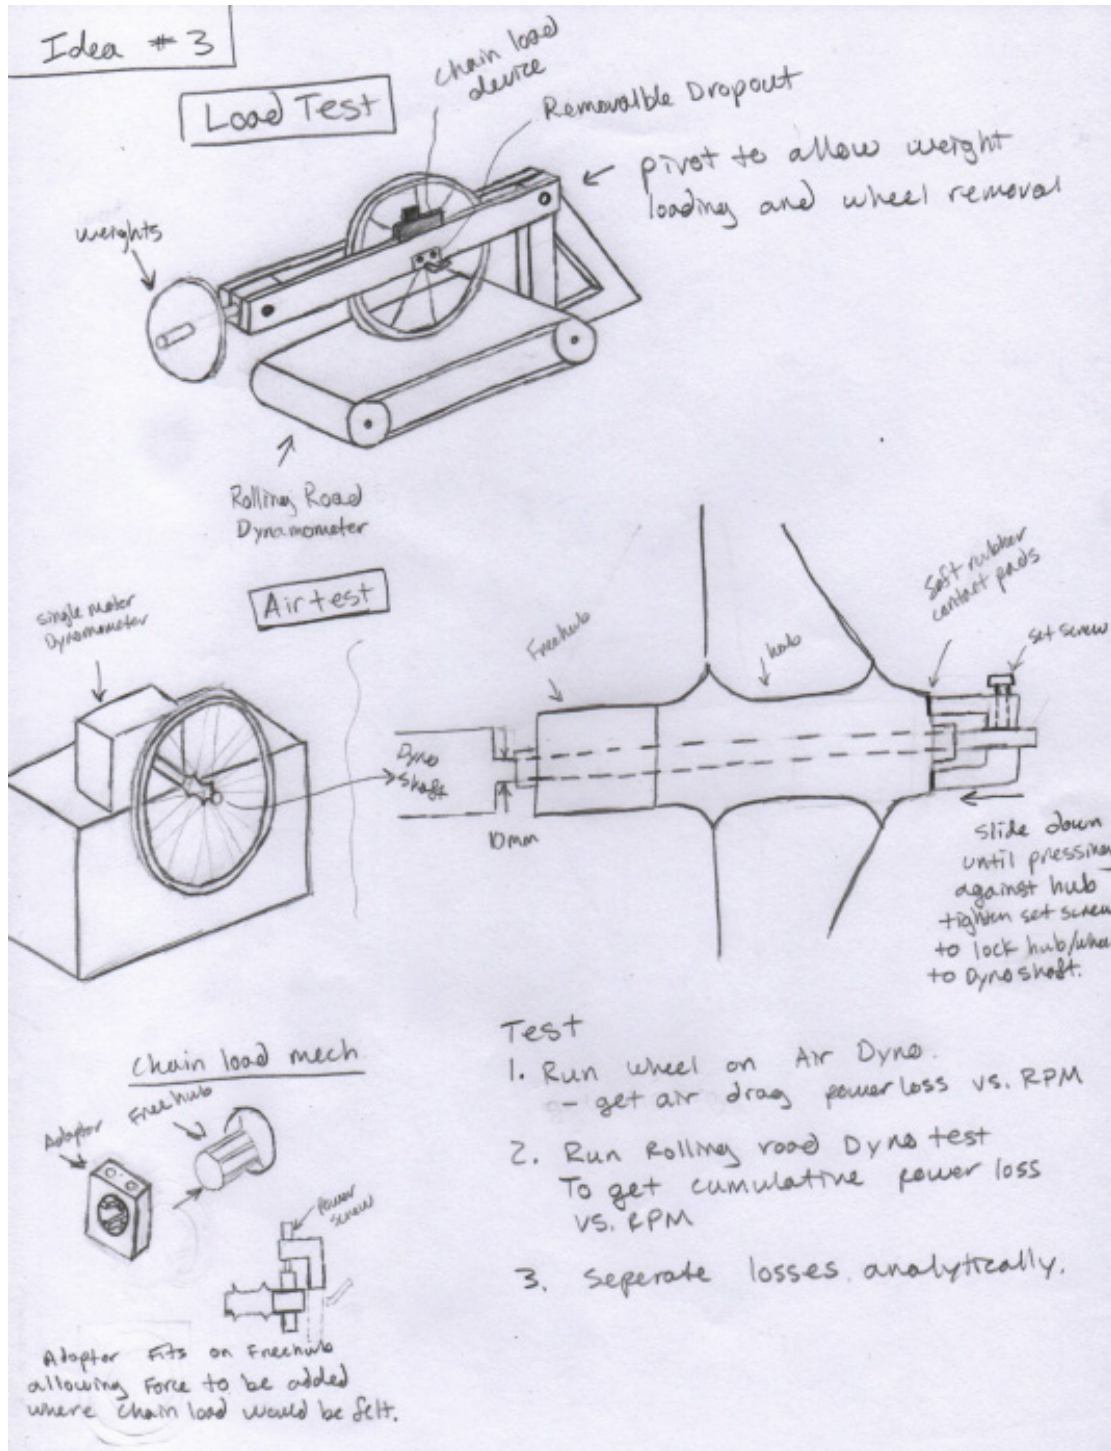 Idea #3
Load Test
chain load
device
Removalble Dropout
pivot to allow weight
loading and wheel removal
weights
Rolling Road
Dynamometer
Air test
single moter
Dynomometer
Freehub
hub
Soft rubber
contact pads
set screw
Dyno
Shaft
10mm
Slide down
until pressing
against hub
tighten set screw
to lock hub/whee
to Dyno shaft.
Chain load mech.
Freehub
Adaptor
Power
screw
Adaptor Fits on Freehub
allowing Force to be added
where chain load would be felt.
Test
1. Run wheel on Air Dyno.
- get air drag power loss vs. RPM
2. Run Rolling road Dyno test
To get cumulative power loss
vs. RPM
3. Seperate losses analytically.